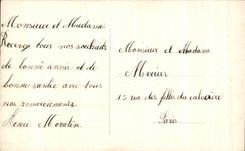 Monsieur et Madame
Recevez tous nos souhaits
de bonne année et de
bonne santée avec tous
nos remerciements.
Henri
Monsieur et Madame
Mercier
15 rue des filles du calvaire
Paris